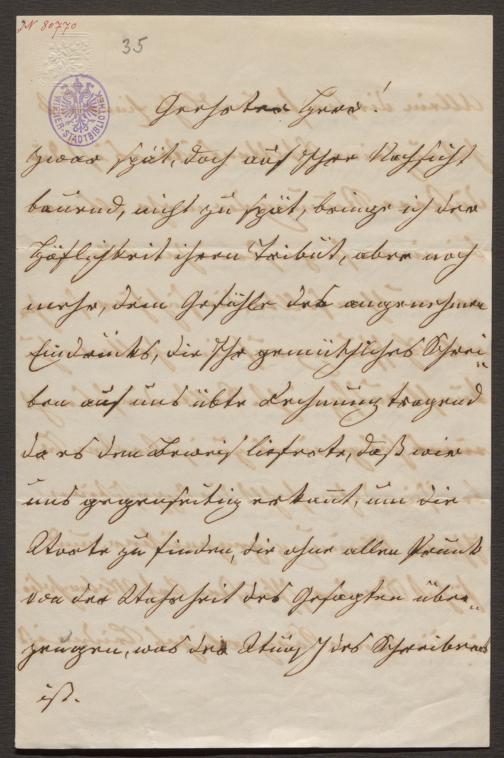 JN 80770
35
WIENER-STADTBIBLIOTHEK
Geehrter Herr!
Zwar spät, doch auf Ihre Nachsicht
bauend, nicht zu spät, bringe ich der
Höflichkeit ihren Tribut, aber noch
mehr, dem Gefühle des angenehmen
Eindrucks, die Ihr gemüthliches Schrei-
ben auf uns übte Rechnung tragend
da es dem Beweis lieferte, daß wir
uns gegenseitig erkant, um die
Worte zu finden, die ohne allen Prunk
von der Wahrheit des Gesagten über-
zeugen, was des des Schreibens
ist.